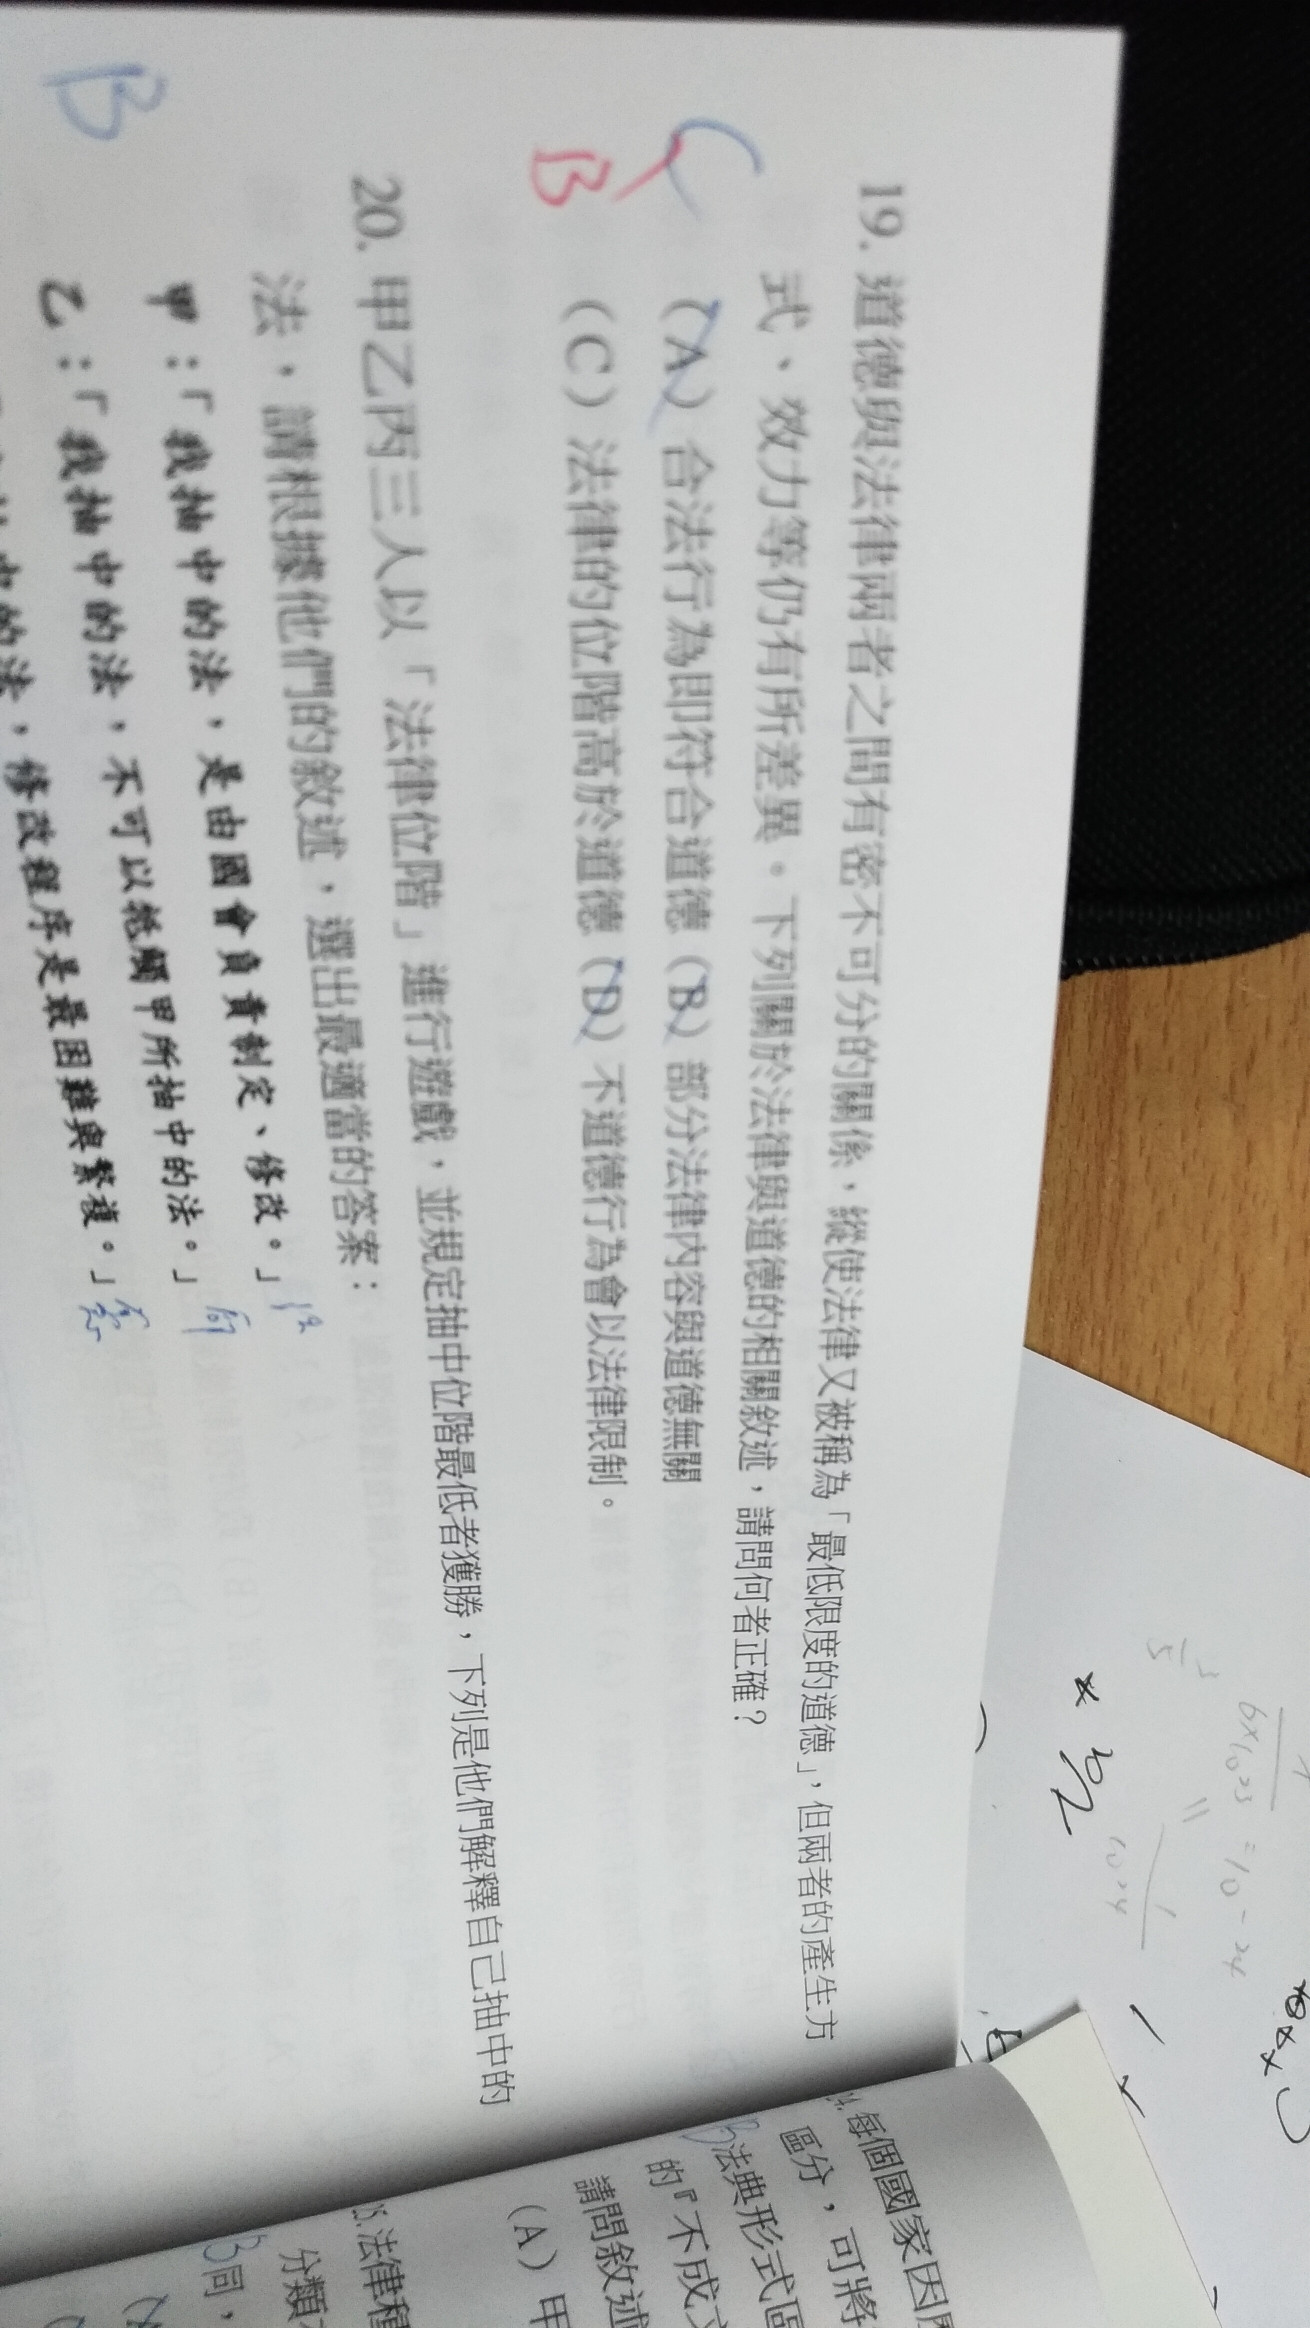 19. 道德與法律兩者之間有密不可分的關係，縱使法律又被稱為「最低限度的道德」，但兩者的產生方
式、效力等仍有所差異。下列關於法律與道德的相關敘述，請問何者正確？
C
B
（A）合法行為即符合道德（B）部分法律內容與道德無關
（C）法律的位階高於道德（D）不道德行為會以法律限制。
20. 甲乙丙三人以「法律位階」進行遊戲，並規定抽中位階最低者獲勝，下列是他們解釋自己抽中的
法，請根據他們的敘述，選出最適當的答案：
B
甲：「我抽中的法，是由國會負責制定、修改。」
乙：「我抽中的法，不可以牴觸甲所抽中的法。」
中的法，修改程序是最困難與繁複。」
每個國家因
區分，可將
法典形式區
的『不成文
請問敘述
（A）甲
法律種
分類
B同，